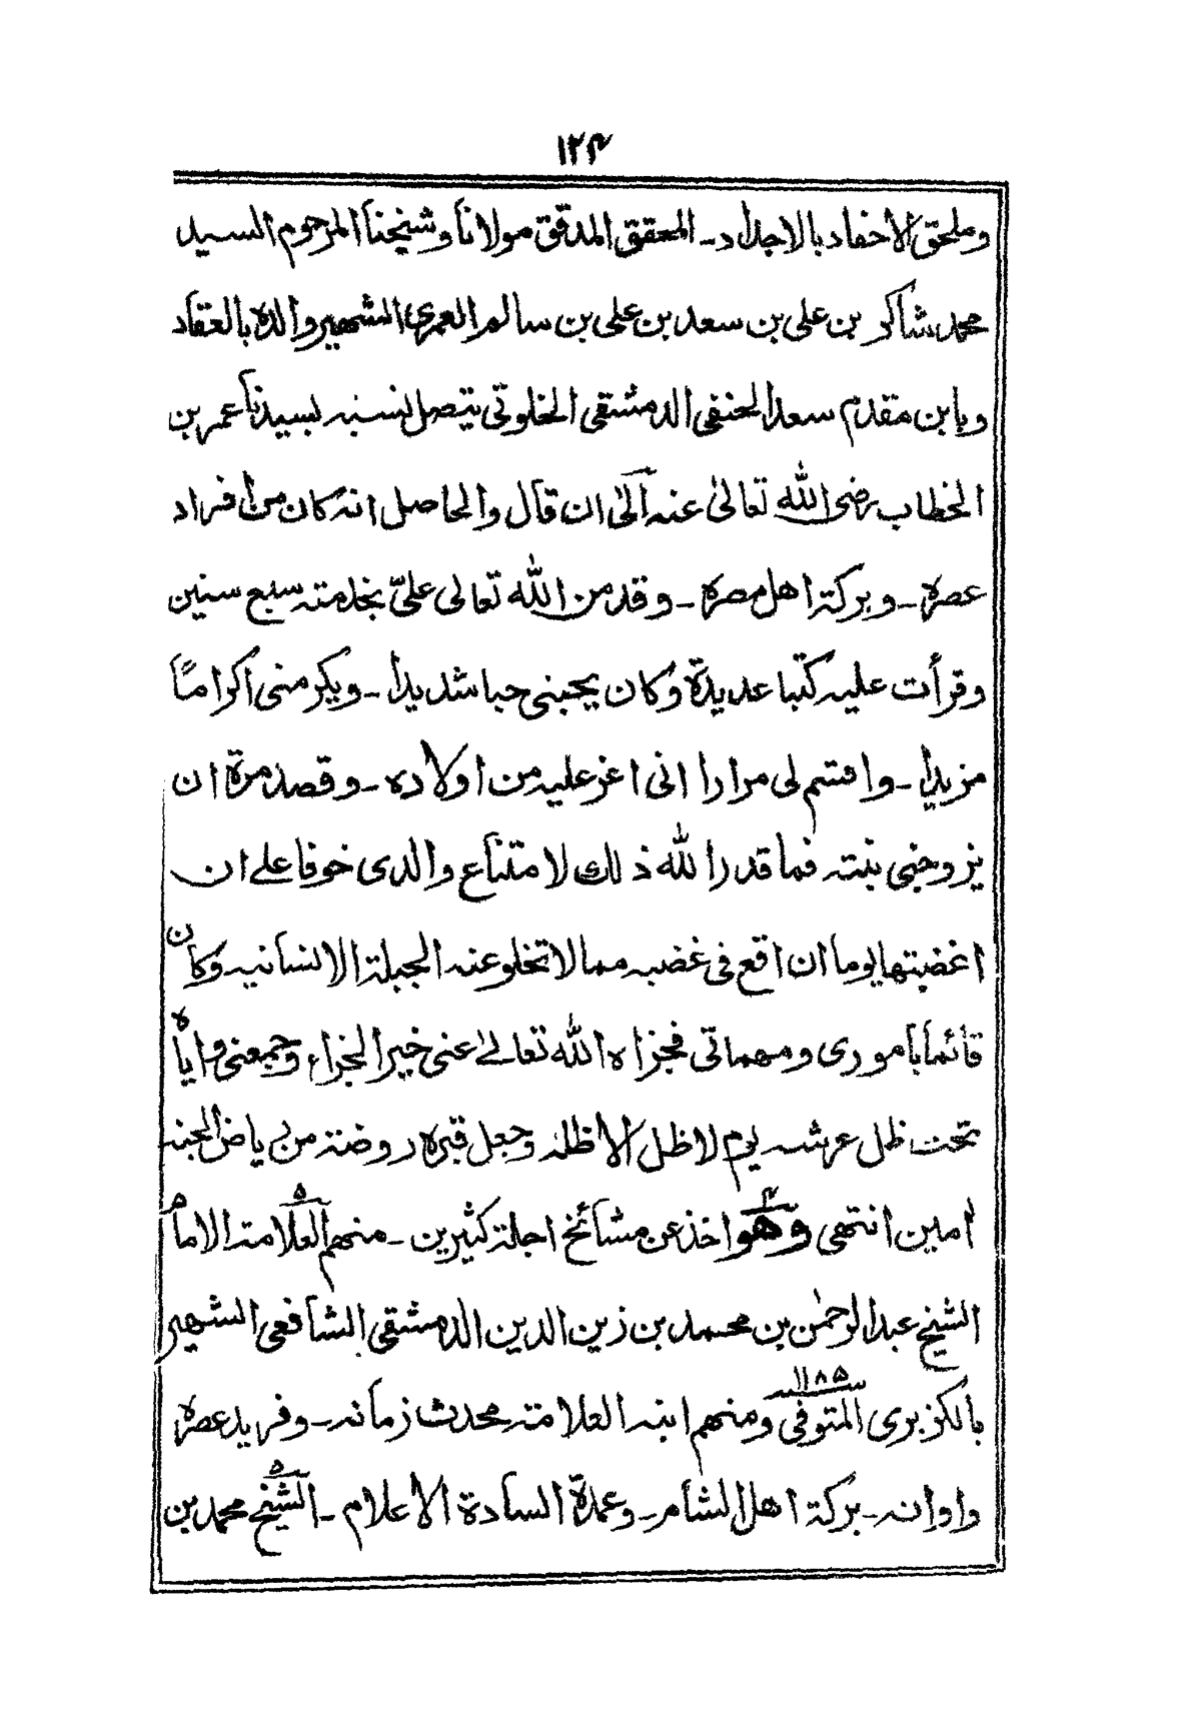 ۱۲۴
وملحق الأحفاد بالاجداد۔ المحقق المدقق مولانا وشيخنا المرحوم السيد
محمد شاكر بن علی بن سعد بن علی بن سالم العمری الشهير والده بالعقاد
وبابن مقدم سعد الحنفی الدمشقی الخلوتی يتصل نسبه لسيدنا عمر بن
الخطاب رضی الله تعالیٰ عنه آلیٰ ان قال والحاصل انه كان من أفراد
عصره۔ وبركة اهل مصره۔ وقد من الله تعالی علیّ بخدمته سبع سنين
وقرأت عليه كتبا عديدة وكان يحبنی حبا شديدا۔ ويكرمنی اكراماً
مزيدا۔ واقسم لی مرارا انی اعز عليه من اولاده۔ وقصد مرة ان
يزوجنی بنته فما قدر الله ذلك لامتناع والدی خوفا علے ان
اغضبتها يوما ان اقع فی غضبه مما لا تخلو عنه الجبلة الانسانيه وكان
قائماً بأموری ومهماتی فجزاه الله تعالےٰ عنی خير الجزاء وجمعنی واياه
تحت ظل عرشه يوم لا ظل الا ظله وجعل قبره روضة من رياض الجنه
اٰمين انتهی وهو اخذ عن مشائخ اجلة كثيرين۔ منهم العلامة الامام
۴
۵
الشيخ عبد الرحمٰن بن محمد بن زين الدين الدمشقی الشافعی الشهير
بالكزبری المتوفی ۱۱۸۵ ومنهم ابنه العلامة محدث زمانه۔ وفريد عصره
واوانه۔ بركة اهل الشأم۔ وعمدة السادة الاعلام۔ الشيخ محمد بن
۵